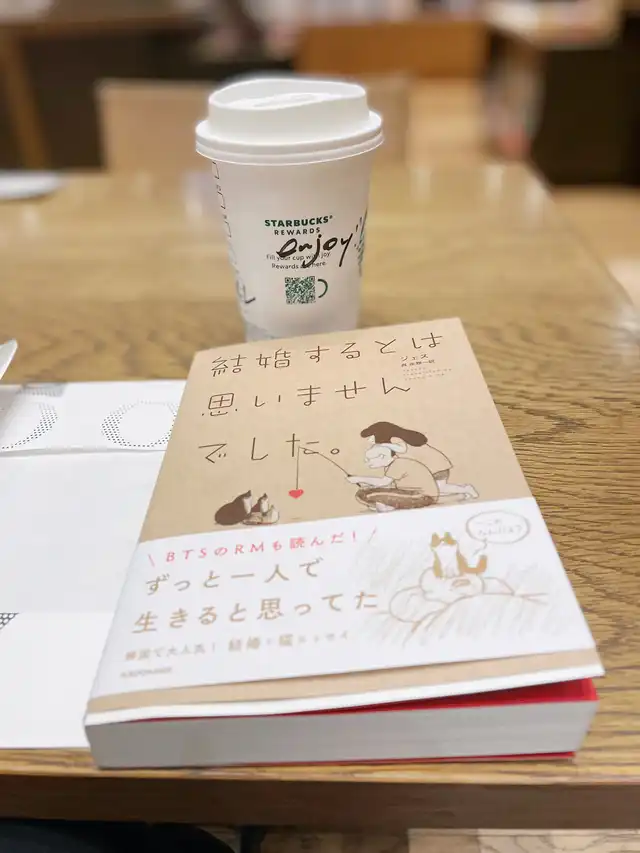 STARBUCKS®
REWARDS
enjoy!
Fill your cup with joy
Rewards are here
結婚するとは
思いません
でした。
ジェス
\ BTSのRMも読んだ! /
ずっと一人で
生きると思ってた
韓国で大人気! 結婚と猫エッセイ
KADOKAWA